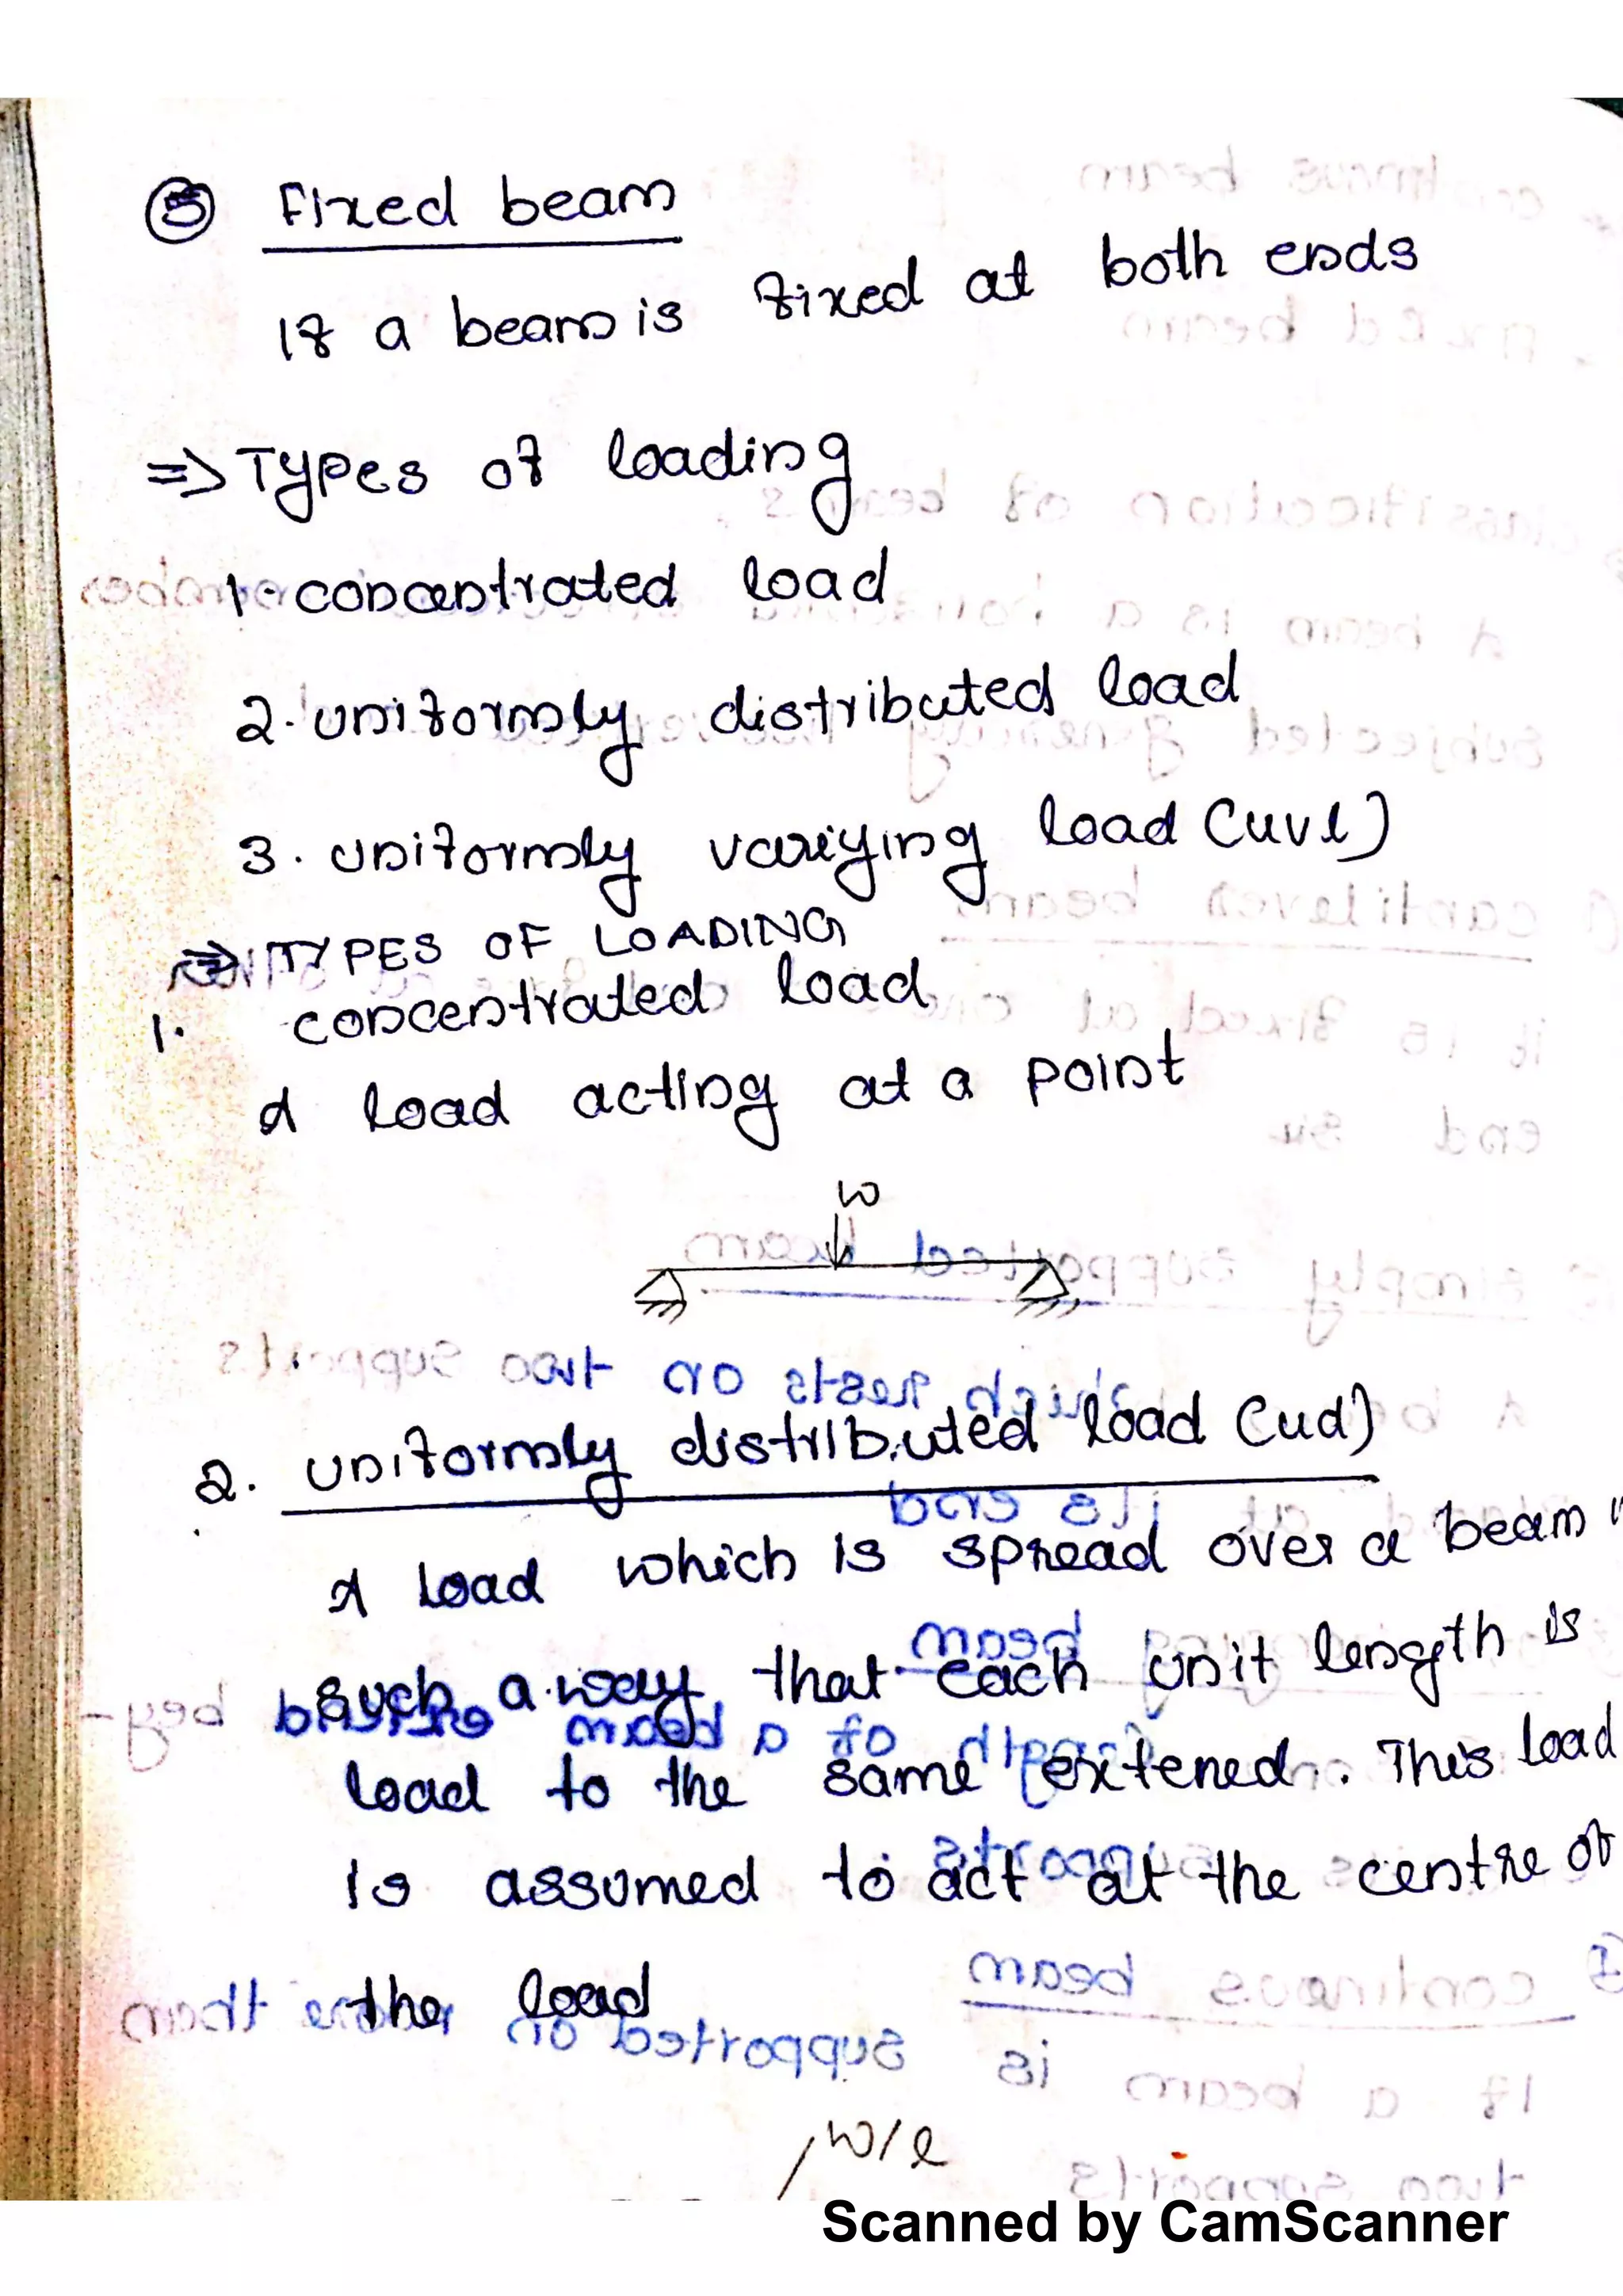 ⑤ Fixed beam
If a beam is fixed at both ends
=> Types of loading
1. concentrated load
2. uniformly distributed load
3. uniformly varying load (uvl)
=> TYPES OF LOADING
1. concentrated load
A load acting at a point
W
2. uniformly distributed load (ud)
A load which is spread over a beam
such a way that each unit length is
load to the same extened. This load
is assumed to act at the centre of
the load
W/l
Scanned by CamScanner